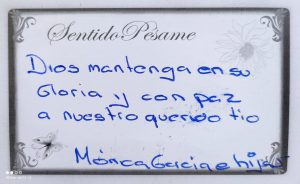 Sentido Pésame
Dios mantenga en su
Gloria y con paz
a nuestro querido tio
Mónica Garcia e hijas